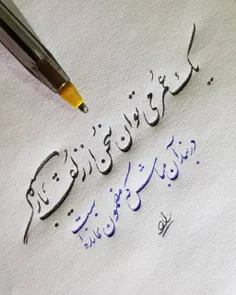 یک عمر می توان سخن از زلف یار گفت
در بند آن مباش که مضمون نمانده است